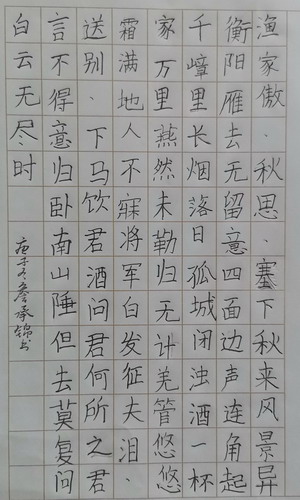 渔家傲·秋思·塞下秋来风景异
衡阳雁去无留意四面边声连角起
千嶂里长烟落日孤城闭浊酒一杯
家万里燕然未勒归无计羌管悠悠
霜满地人不寐将军白发征夫泪·
送别·下马饮君酒问君何所之君
言不得意归卧南山陲但去莫复问
白云无尽时
庚子冬詹承锦书